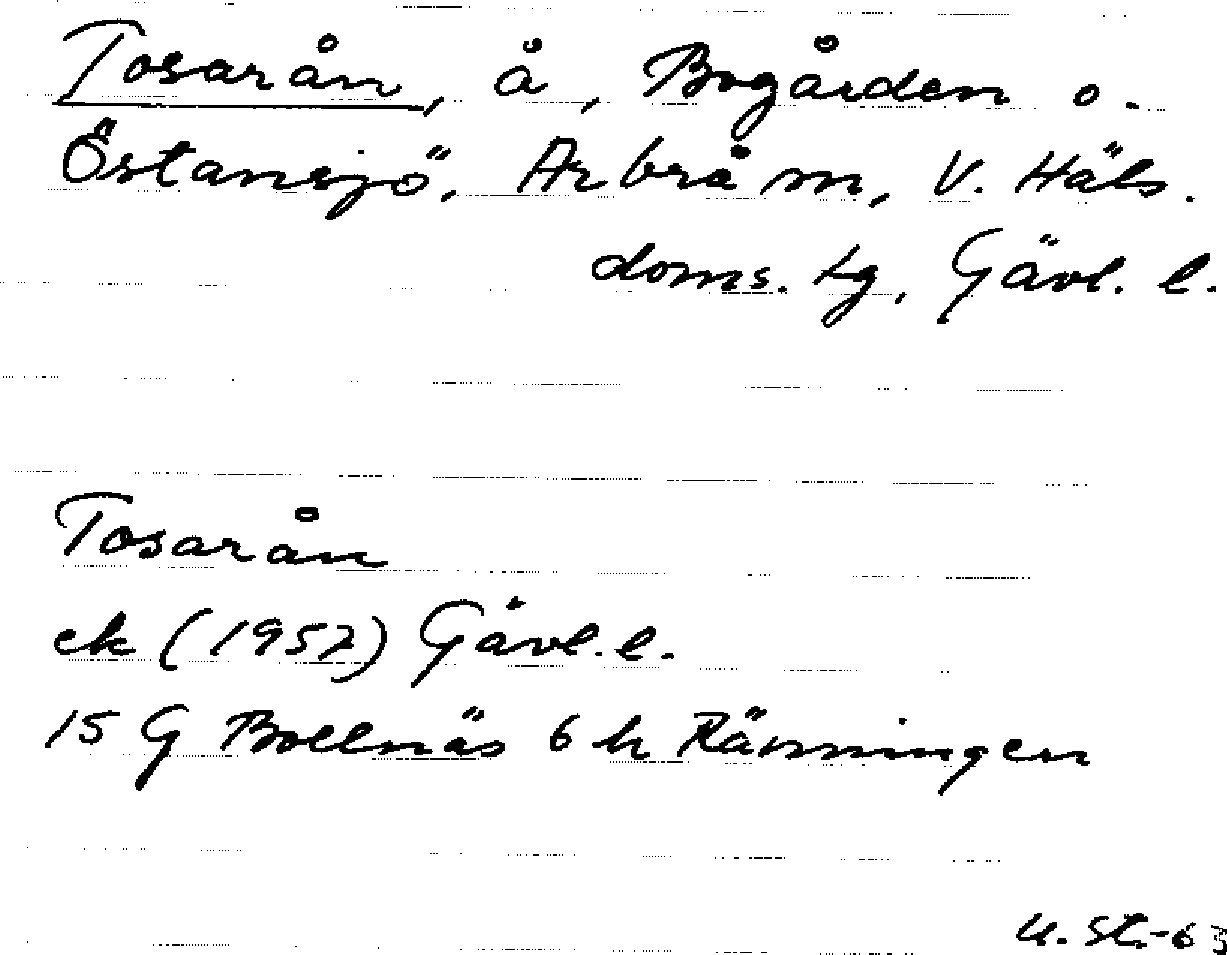 Tosarån, å, Bogården o.
Östansjö, Arbrå sn, V. Häls.
doms. tg, Gävl. l.
Tosarån
ek (1957) Gävl. l.
15 G Bollnäs 6 h Rävnningen
U. St.-63